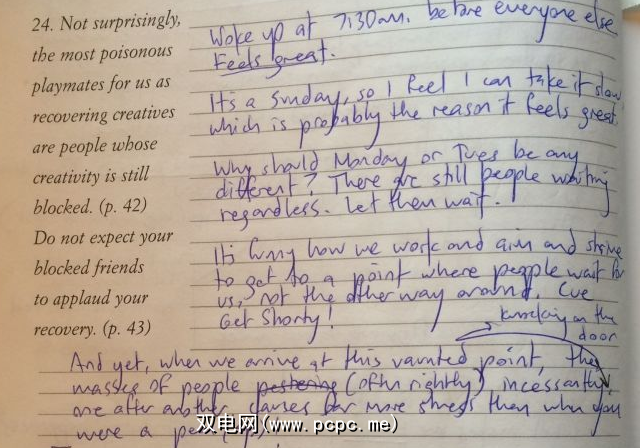 24. Not surprisingly,
the most poisonous
playmates for us as
recovering creatives
are people whose
creativity is still
blocked. (p. 42)
Do not expect your
blocked friends
to applaud your
recovery. (p. 43)
Woke up at 7:30am. before everyone else
Feels great.
It's a Sunday, so I feel I can take it slow
which is probably the reason it feels great.
Why should Monday or Tues be any
different? There are still people waiting
regardless. Let them wait.
It's funny how we work and aim and strive
to get to a point where people wait for
us, not the other way around. Cue
Get Shorty!
knocking on the
door
And yet, when we arrive at this vaunted point, the
masses of people pestering (often rightly) incessantly,
one after another causes far more stress than when you
were a
双电网(www.pcpc.me)